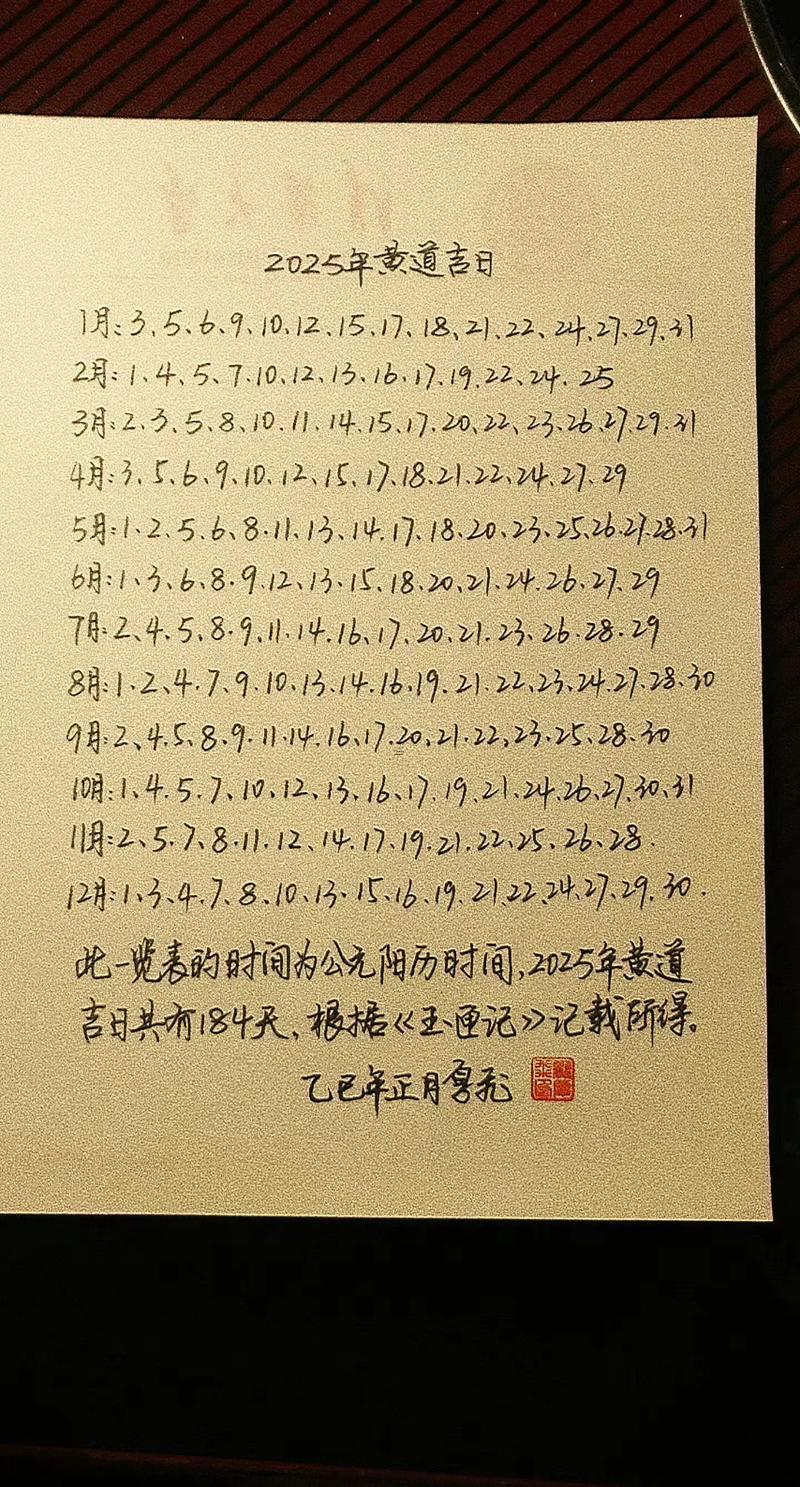 2025年黄道吉日
1月:3、5、6、9、10、12、15、17、18、21、22、24、27、29、31
2月:1、4、5、7、10、12、13、16、17、19、22、24、25
3月:2、3、5、8、10、11、14、15、17、20、22、23、26、27、29、31
4月:3、5、6、9、10、12、15、17、18、21、22、24、27、29
5月:1、2、5、6、8、11、13、14、17、18、20、23、25、26、27、28、31
6月:1、3、6、8、9、12、13、15、18、20、21、24、26、27、29
7月:2、4、5、8、9、11、14、16、17、20、21、23、26、28、29
8月:1、2、4、7、9、10、13、14、16、19、21、22、23、24、27、28、30
9月:2、4、5、8、9、11、14、16、17、20、21、22、23、25、28、30
10月:1、4、5、7、10、12、13、16、17、19、21、24、26、27、30、31
11月:2、5、7、8、11、12、14、17、19、21、22、25、26、28.
12月:1、3、4、7、8、10、13、15、16、19、21、22、24、27、29、30.
此一览表的时间为公元阳历时间,2025年黄道
吉日共有184天,根据《玉匣记》记载所得。
乙巳年正月